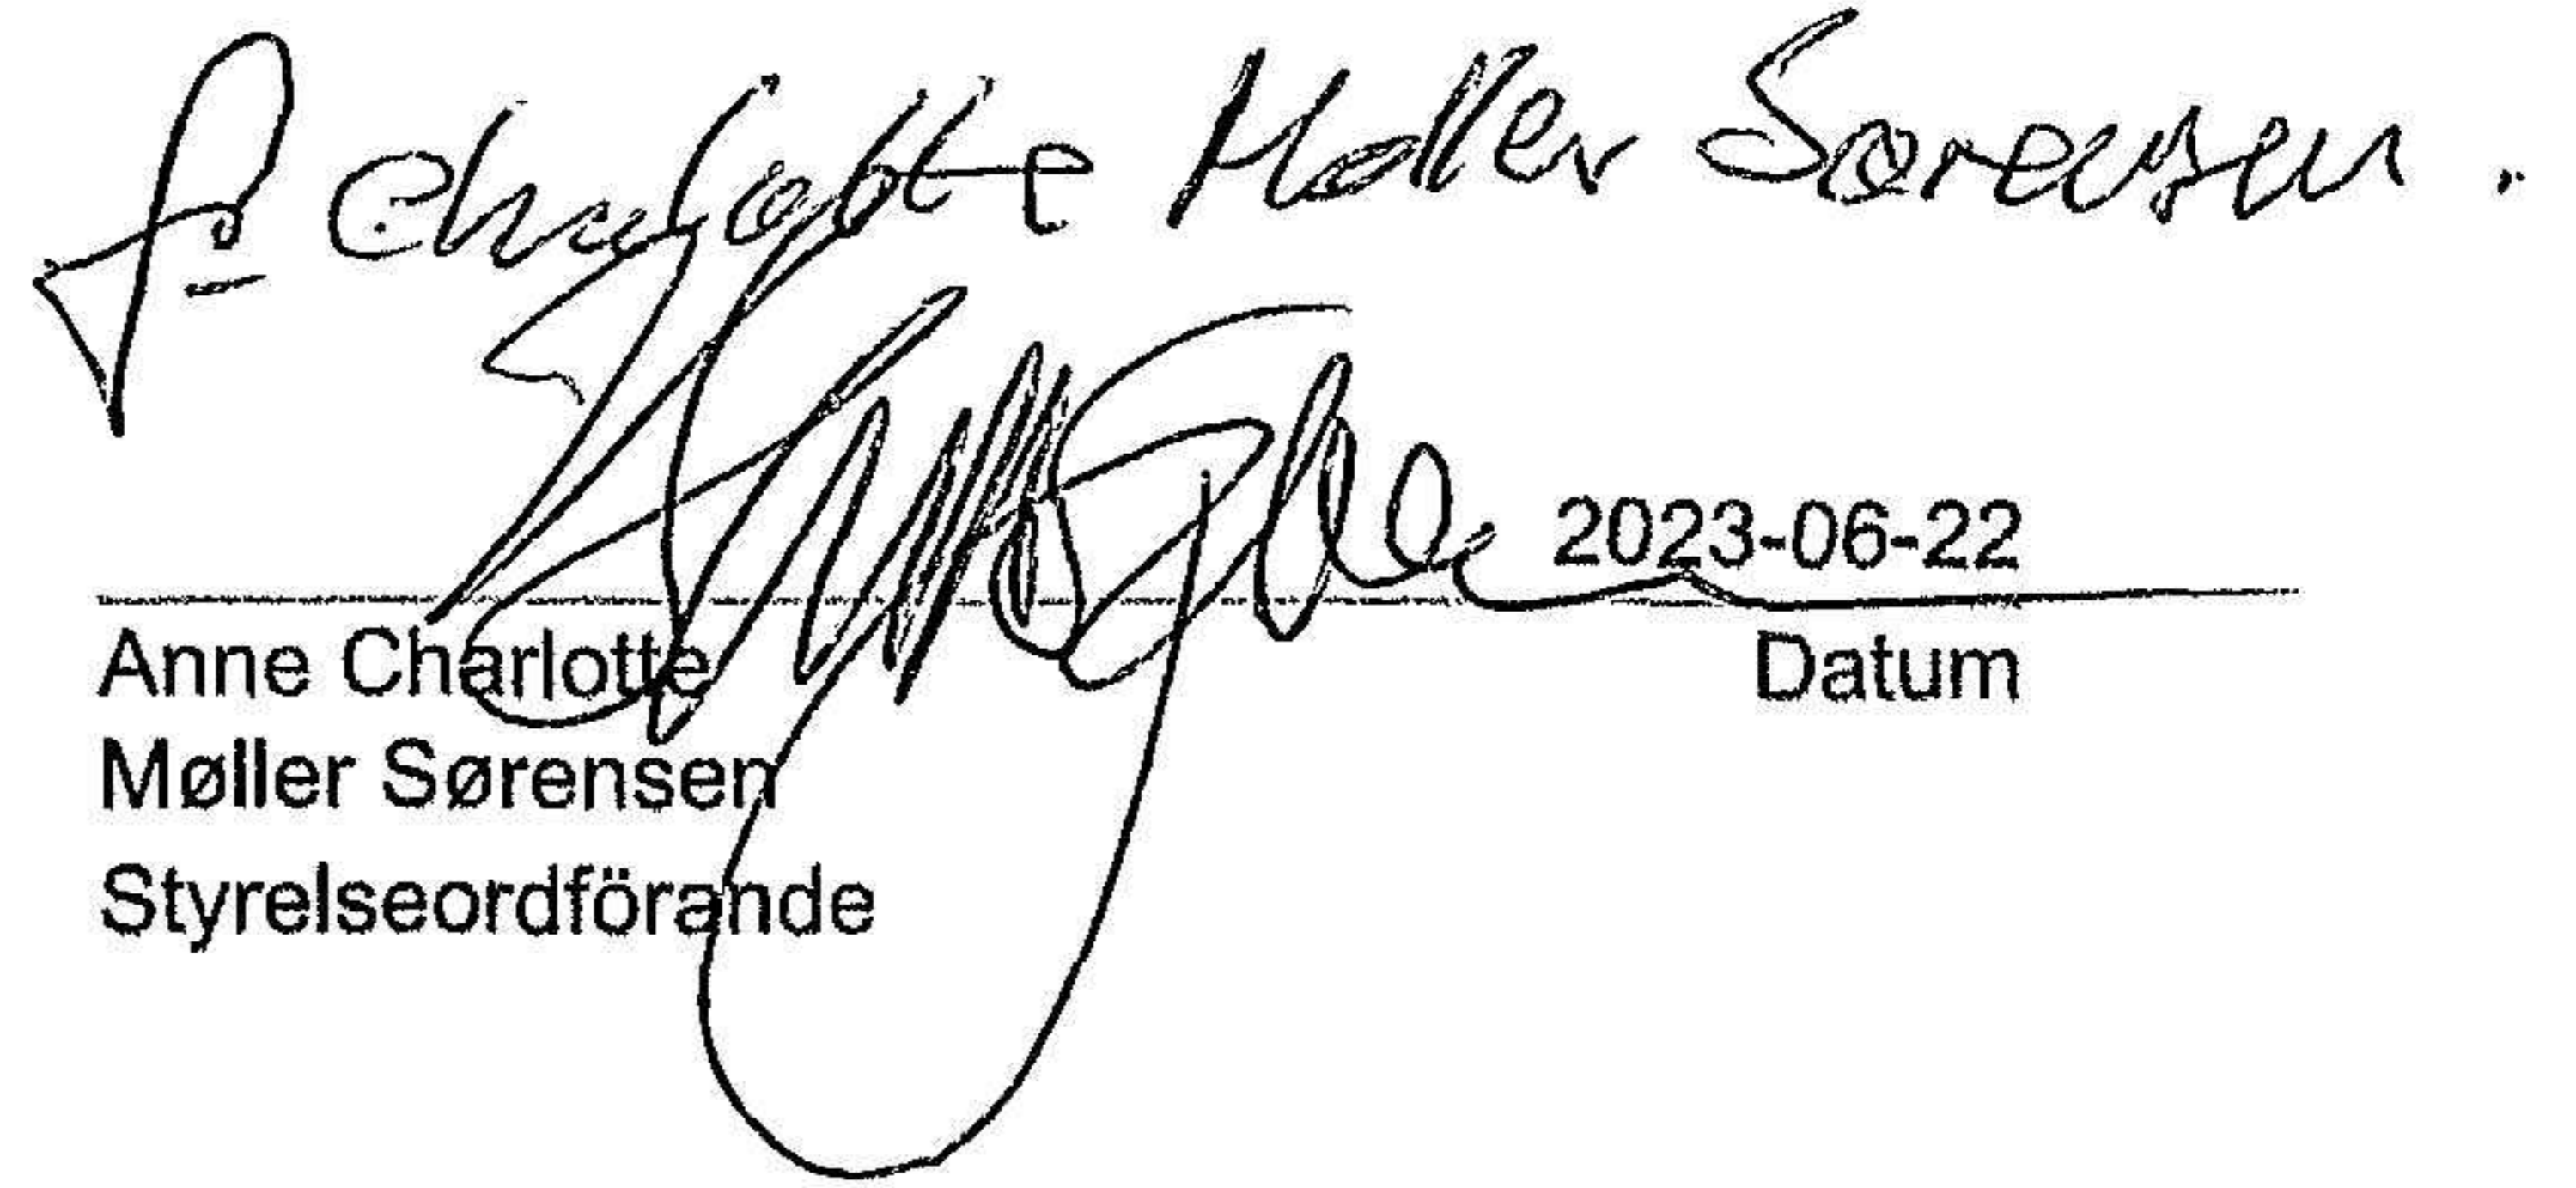 Charlotte Møller Sørensen.
2023-06-22
Anne Charlotte Datum
Møller Sørensen
Styrelseordförande